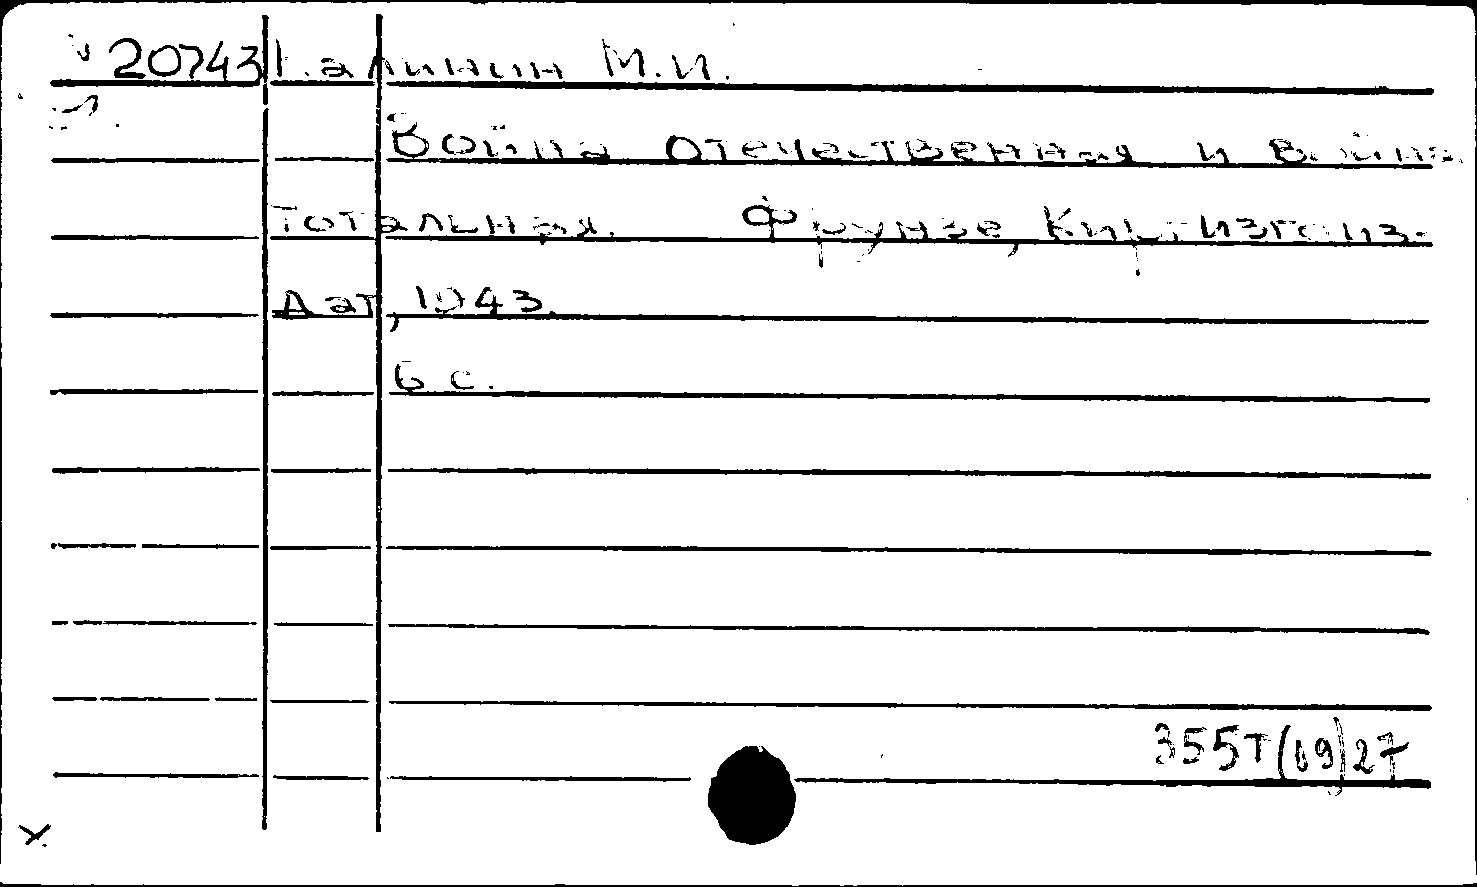 20743 Калинин М.И.
Война отечественная и война
тотальная. Фрунзе, Киргизгосиз-
дат, 1943.
6 с.
355Т(09)27